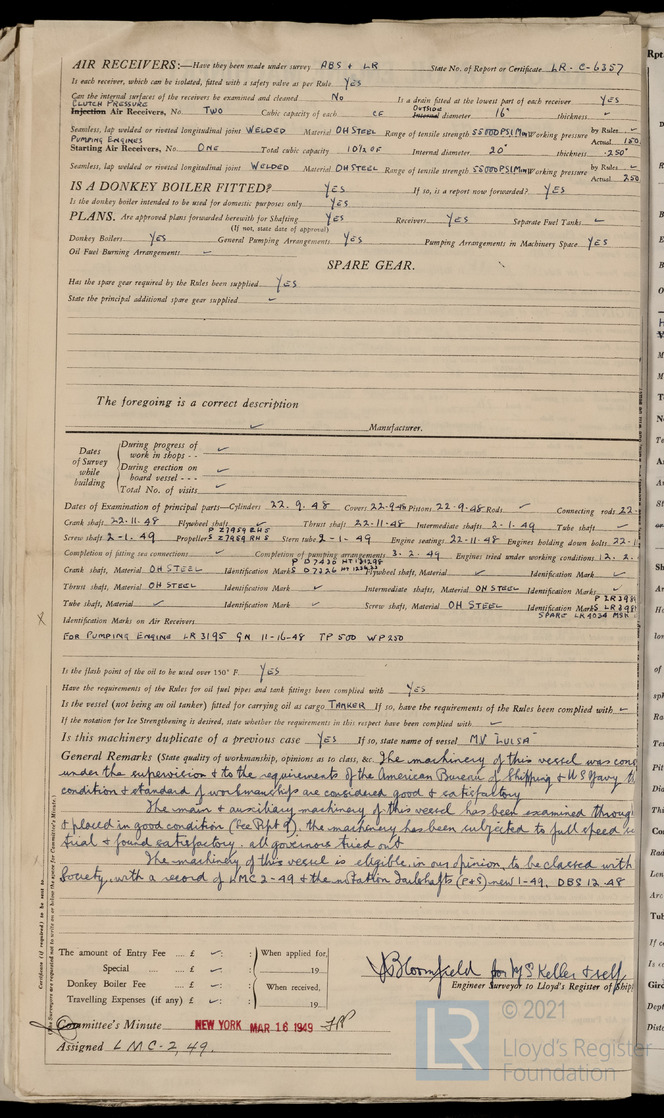 AIR RECEIVERS:—Have they been made under survey ABS & LR State No. of Report or Certificate LR-C-6357
Is each receiver, which can be isolated, fitted with a safety valve as per Rule YES
Can the internal surfaces of the receivers be examined and cleaned No Is a drain fitted at the lowest part of each receiver YES
CLUTCH PRESSURE OUTSIDE
Injection Air Receivers, No. TWO Cubic capacity of each CF Internal diameter 16" thickness
Seamless, lap welded or riveted longitudinal joint WELDED Material OH STEEL Range of tensile strength 55000 PSI Min Working pressure by Rules
Actual 150
PUMPING ENGINES
Starting Air Receivers, No. ONE Total cubic capacity 10½ CF Internal diameter 20" thickness .250"
Seamless, lap welded or riveted longitudinal joint WELDED Material OH STEEL Range of tensile strength 55000 PSI Min Working pressure by Rules
Actual 250
IS A DONKEY BOILER FITTED? YES If so, is a report now forwarded? YES
Is the donkey boiler intended to be used for domestic purposes only YES
PLANS. Are approved plans forwarded herewith for Shafting YES Receivers YES Separate Fuel Tanks
(If not, state date of approval)
Donkey Boilers YES General Pumping Arrangements YES Pumping Arrangements in Machinery Space YES
Oil Fuel Burning Arrangements
SPARE GEAR.
Has the spare gear required by the Rules been supplied YES
State the principal additional spare gear supplied
The foregoing is a correct description
Manufacturer.
Dates of Survey while building
During progress of work in shops - -
During erection on board vessel - - -
Total No. of visits
Dates of Examination of principal parts—Cylinders 22.9.48 Covers 22-9-48 Pistons 22-9-48 Rods Connecting rods 22-
Crank shaft 22-11-48 Flywheel shaft Thrust shaft 22-11-48 Intermediate shafts 2-1-49 Tube shaft
P Z7959 LHS
Screw shaft 2-1.49 Propeller S Z7959 RHS Stern tube 2-1-49 Engine seatings 22-11-48 Engines holding down bolts 22-1
Completion of fitting sea connections Completion of pumping arrangements 3.2.49 Engines tried under working conditions 12.2.
Crank shaft, Material OH STEEL Identification Mark Flywheel shaft, Material Identification Mark
Thrust shaft, Material OH STEEL Identification Mark Intermediate shafts, Material OH STEEL Identification Marks
P LR 398
Tube shaft, Material Identification Mark Screw shaft, Material OH STEEL Identification Marks S LR 398
SPARE LR 4034 MSK
Identification Marks on Air Receivers
FOR PUMPING ENGINE LR 3195 GN 11-16-48 TP 500 WP 250
Is the flash point of the oil to be used over 150° F. YES
Have the requirements of the Rules for oil fuel pipes and tank fittings been complied with YES
Is the vessel (not being an oil tanker) fitted for carrying oil as cargo TANKER If so, have the requirements of the Rules been complied with
If the notation for Ice Strengthening is desired, state whether the requirements in this respect have been complied with
Is this machinery duplicate of a previous case YES If so, state name of vessel MV "LUISA"
General Remarks (State quality of workmanship, opinions as to class, &c. The machinery of this vessel was cons
under the supervision & to the requirements of the American Bureau of Shipping & US Navy th
condition & standard of workmanship are considered good & satisfactory
The main & auxiliary machinery of this vessel has been examined throug
& placed in good condition (See Rpt 9). the machinery has been subjected to full speed
trial & found satisfactory. all governors tried out
The machinery of this vessel is eligible, in our opinion, to be classed with
Society, with a record of LMC 2-49 & the notation Tailshafts (P&S) new 1-49, DBS 12.48
Certificate (if required) to be sent to
(The Surveyors are requested not to write on or below the space for Committee's Minute.)
The amount of Entry Fee .... £ : : When applied for,
Special .... .... £ : : 19
Donkey Boiler Fee .... £ : : When received,
Travelling Expenses (if any) £ : : 19
J Bloomfield for W S Keller & self
Engineer Surveyor to Lloyd's Register of Ship
Committee's Minute NEW YORK MAR 16 1949
Assigned LMC-2,49.
LR
© 2021
Lloyd's Register
Foundation
Rpt.